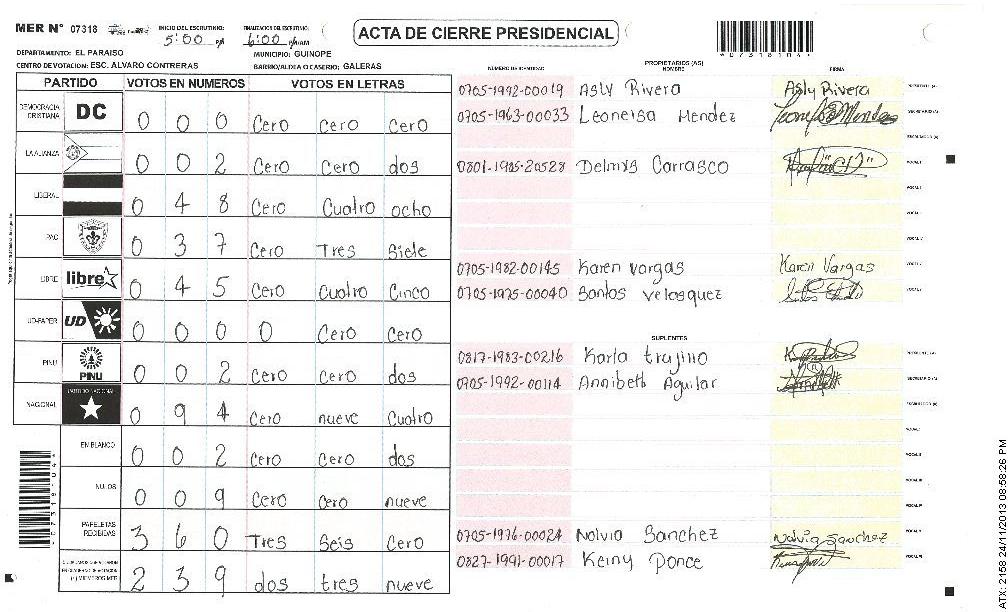 MER N° 07318
INICIO DEL ESCRUTINIO:
5:00 PM
FINALIZACION DEL ESCRUTINIO:
6:00 PM/AM
ACTA DE CIERRE PRESIDENCIAL
DEPARTAMENTO: EL PARAISO
MUNICIPIO: GUINOPE
CENTRO DE VOTACION: ESC. ALVARO CONTRERAS
BARRIO/ALDEA O CASERIO: GALERAS
PARTIDO VOTOS EN NUMEROS VOTOS EN LETRAS
DEMOCRACIA CRISTIANA DC 0 0 0 Cero Cero Cero
LA ALIANZA 0 0 2 Cero Cero dos
LIBERAL 0 4 8 Cero Cuatro ocho
PAC 0 3 7 Cero Tres Siete
LIBRE libre 0 4 5 Cero Cuatro Cinco
UD-FAPER UD 0 0 0 0 Cero Cero
PINU PINU 0 0 2 Cero Cero dos
NACIONAL PARTIDO NACIONAL 0 9 4 Cero nueve Cuatro
EN BLANCO 0 0 2 Cero Cero dos
NULOS 0 0 9 Cero Cero nueve
PAPELETAS RECIBIDAS 3 6 0 Tres Seis Cero
2 3 9 dos tres nueve
NÚMERO DE IDENTIDAD PROPIETARIOS (AS) NOMBRE FIRMA
0705-1992-00019 Asly Rivera Asly Rivera PRESIDENTE (A)
0705-1963-00033 Leoneisa Mendez SECRETARIO (A)
ESCRUTADOR (A)
0801-1985-20528 Delmys Carrasco VOCAL I
VOCAL II
VOCAL III
VOCAL IV
0705-1982-00145 Karen Vargas Karen Vargas VOCAL V
0705-1975-00040 Santos Velasquez
SUPLENTES
0817-1983-00216 Karla trujino PRESIDENTE (A)
0705-1992-00114 Annibeth Aguilar SECRETARIO (A)
ESCRUTADOR (A)
VOCAL I
VOCAL II
VOCAL III
VOCAL IV
0705-1976-00024 Nolvia Sanchez Nolvia Sanchez VOCAL V
0827-1991-00017 Keiny Ponce VOCAL VI
ATX: 2158 24/11/2013 08:58:26 PM